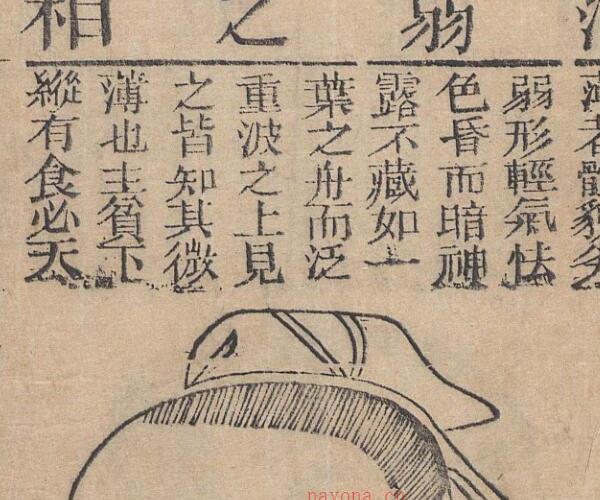 弱之相
薄者體貌劣
弱形輕氣怯
色昏而暗神
露不藏如一
葉之舟而泛
重波之上見
之皆知其微
薄也主貧下
縱有食必夭
nayona.cn